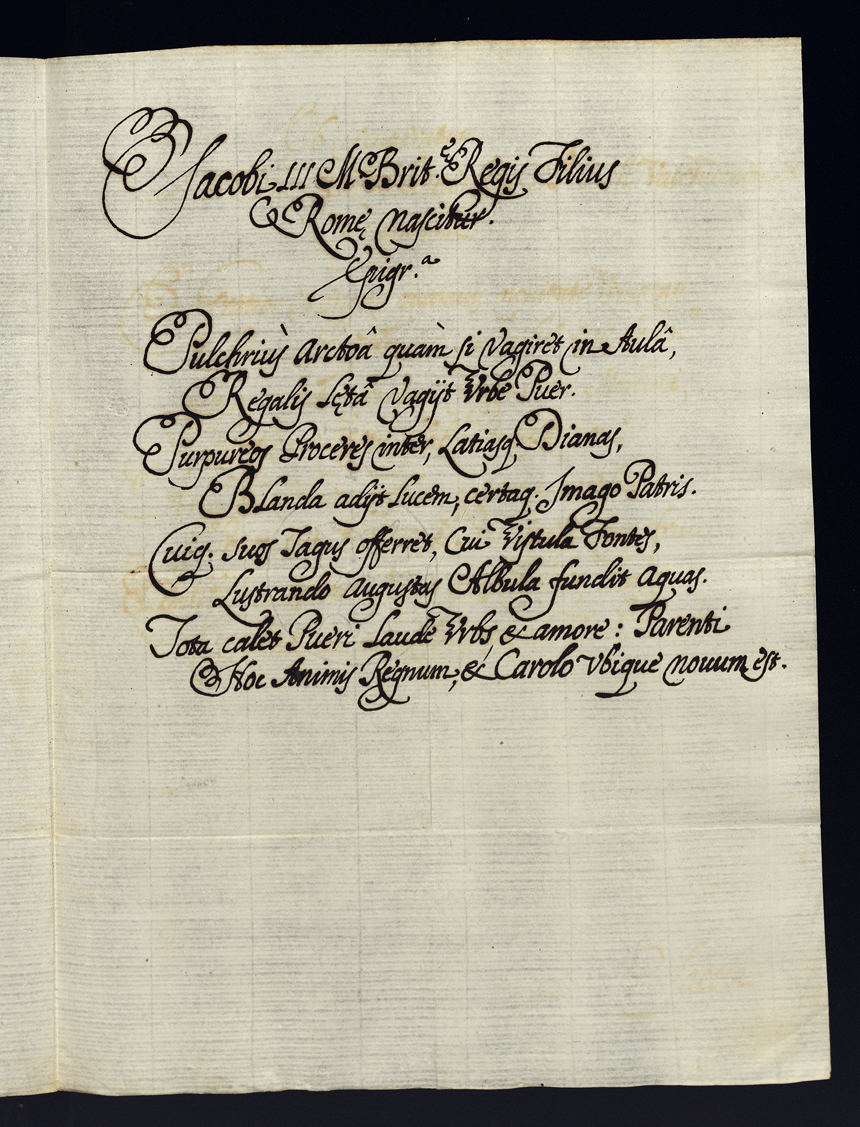 Jacobi III M Brit.ę Regis Filius
Romę nascitur.
Epigr.a
Pulchriùs Arctoâ quàm si vagiret in Aulâ,
Regalis Lętâ vagijt Vrbe Puer.
Purpureos Proceres inter, Latiasq. Dianas,
Blanda adijt Lucem, certaq. Imago Patris.
Cuiq. suos Tagus offerret, Cui Vistula Fontes,
Lustrando Augustas Albula fundit Aquas.
Tota calet Pueri Laude Vrbs, & amore: Parenti
Hoc Animis Regnum, & Carolo vbique nouum est.